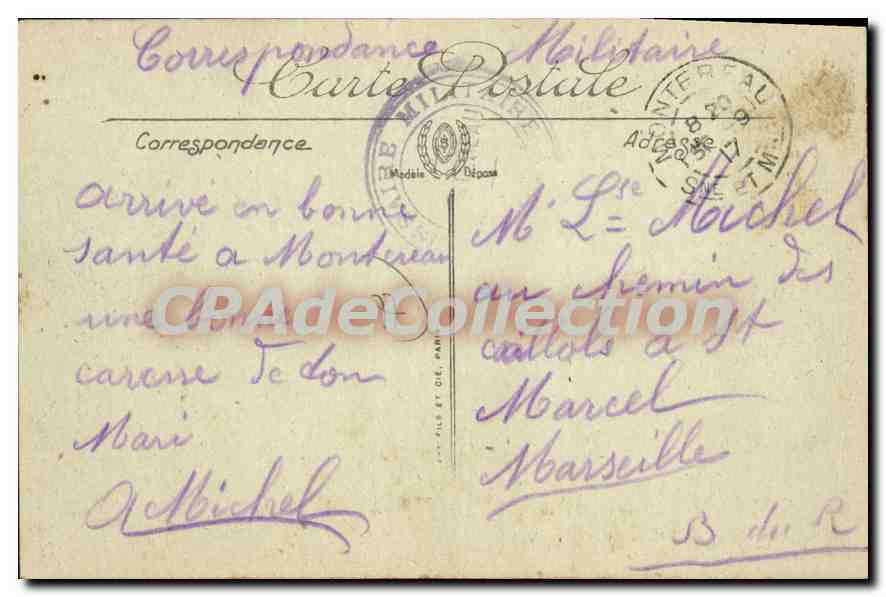 Correspondance Militaire
Carte Postale
Correspondance
Adresse
Modèle Déposé
MONTEREAU
SNE ET M
arrive en bonne
santé a Montereau
une bonne
caresse de ton
Mari
A Michel
Lse Michel
au chemin des
caillols a St
Marcel
Marseille
B du R
FILS ET CIE, PARIS
CPAdeCollection.com